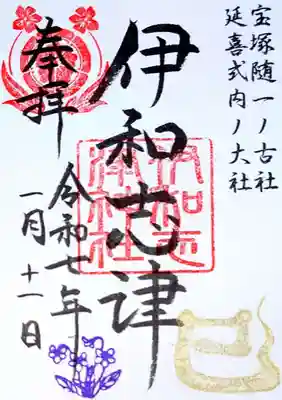 宝塚随一ノ古社
延喜式内ノ大社
伊和志津
伊和志
津神社
奉拝
令和七年
一月十一日